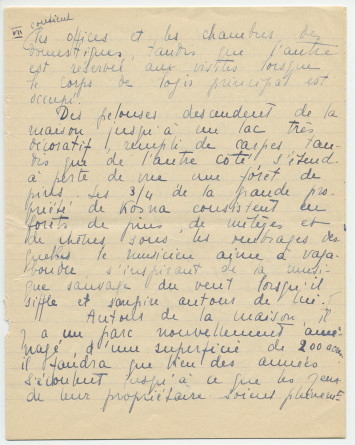 VII
contient
les offices et les chambres des
domestiques, tandis que l'autre
est réservé aux visites lorsque
le corps de logis principal est
occupé.
Des pelouses descendent de la
maison jusqu'à un lac très
décoratif, rempli de carpes, tan-
dis que de l'autre côté, s'étend
à perte de vue une forêt de
pins. Les 3/4 de la grande pro
priété de Kosna consistent en
forêts de pins, de mélèzes et
de chênes sous les ombrages des
quels le musicien aime à vaga-
bonder, s'inspirant de la musi-
que sauvage du vent lorsqu'il
siffle et soupire autour de lui.
Autour de la maison, il
y a un parc nouvellement amé-
nagé, d'une superficie de 200 acres
il faudra que bien des années
s'écoulent jusqu'à ce que les
de leur propriétaire soient